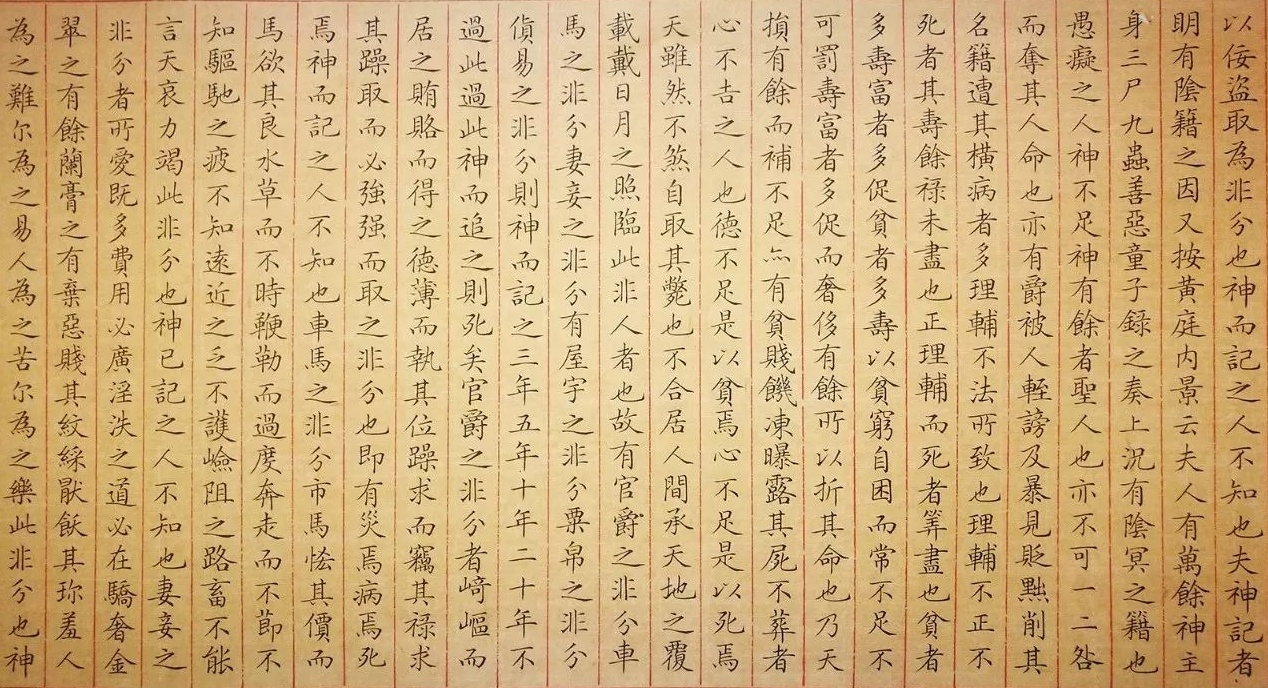 以佞盜取為非分也神而記之人不知也夫神記者
眀有陰籍之因又按黃庭内景云夫人有萬餘神主
身三尸九蟲善惡童子錄之奏上況有陰冥之籍也
愚癡之人神不足神有餘者聖人也亦不可一二咎
而奪其人命也亦有爵被人輊謗及暴見貶黜削其
名籍遭其橫病者多理輔不法所致也理輔不正不
死者其壽餘禄未盡也正理輔而死者筭盡也貧者
多壽富者多促貧者多壽以貧窮自困而常不足不
可罰壽富者多促而奢侈有餘所以折其命也乃天
損有餘而補不足亦有貧賤饑凍曝露其屍不葬者
心不吉之人也德不足是以貧焉心不足是以死焉
天雖然不煞自取其斃也不合居人間承天地之覆
載戴日月之照臨此非人者也故有官爵之非分車
馬之非分妻妾之非分有屋宇之非分粟帛之非分
貨易之非分則神而記之三年五年十年二十年不
過此過此神而追之則死矣官爵之非分者﨑嶇而
居之賄賂而得之德薄而執其位躁求而竊其禄求
其躁取而必強强而取之非分也即有災焉病焉死
焉神而記之人不知也車馬之非分市馬恡其價而
馬欲其良水草而不時鞭勒而過度奔走而不節不
知驅馳之疲不知遠近之乏不護嶮阻之路畜不能
言天哀力竭此非分也神已記之人不知也妻妾之
非分者所愛既多費用必廣淫泆之道必在驕奢金
翠之有餘蘭膏之有棄惡賤其紋綵猒飫其珎羞人
為之難尔為之易人為之苦尔為之樂此非分也神